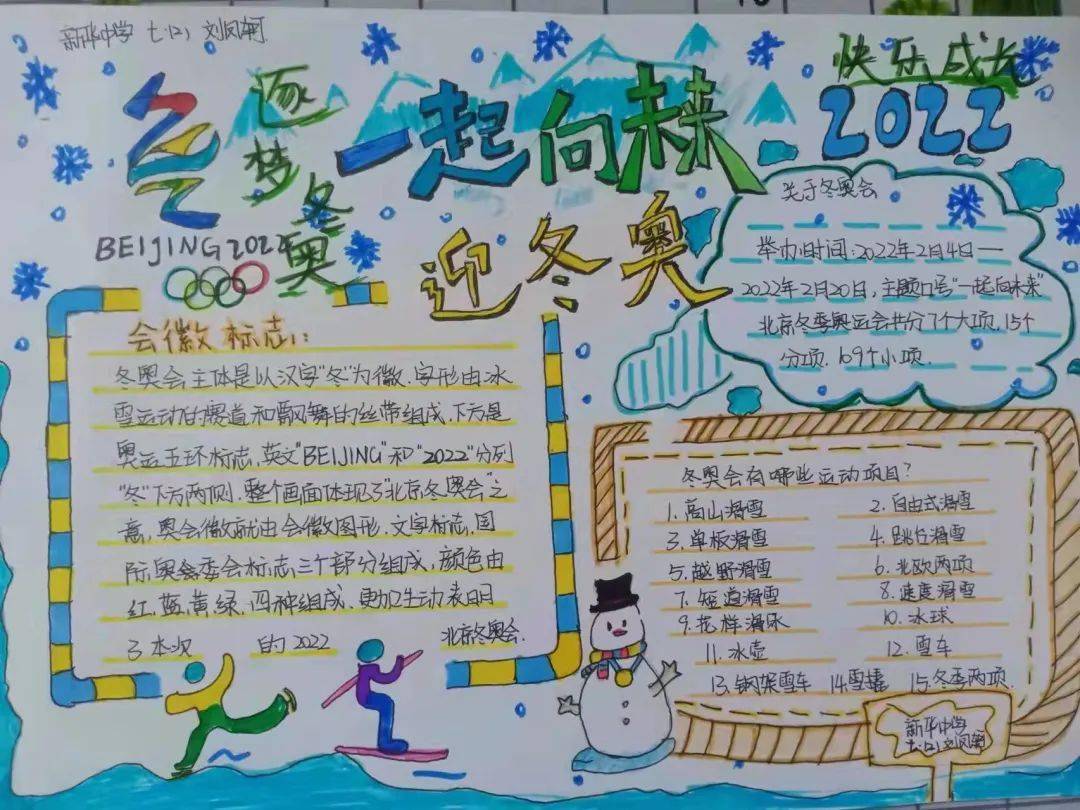 新华中学 七.(2) 刘凤朝
快乐成长
2022
逐梦冬奥
一起向未来
迎冬奥
BEIJING 2022
会徽标志:
冬奥会主体是以汉字"冬"为徽.字形由冰
雪运动的赛道和飘舞的丝带组成.下方是
奥运五环标志,英文"BEIJING"和"2022"分列
"冬"下方两侧.整个画面体现了"北京冬奥会"之
意,奥会徽就由会徽图形.文字标志,国
际奥委会标志三个部分组成,颜色由
红.蓝.黄.绿.四种组成.更加生动表明
了本次 的2022 北京冬奥会.
关于冬奥会
举办时间:2022年2月4日——
2022年2月20日,主题口号"一起向未来"
北京冬季奥运会共分7个大项,15个
分项.109个小项.
冬奥会有哪些运动项目?
1.高山滑雪 2.自由式滑雪
3.单板滑雪 4.跳台滑雪
5.越野滑雪 6.北欧两项
7.短道滑雪 8.速度滑雪
9.花样滑冰 10.冰球
11.冰壶 12.雪车
13.钢架雪车 14.雪橇 15.冬季两项.
新华中学
七.(2)刘凤朝